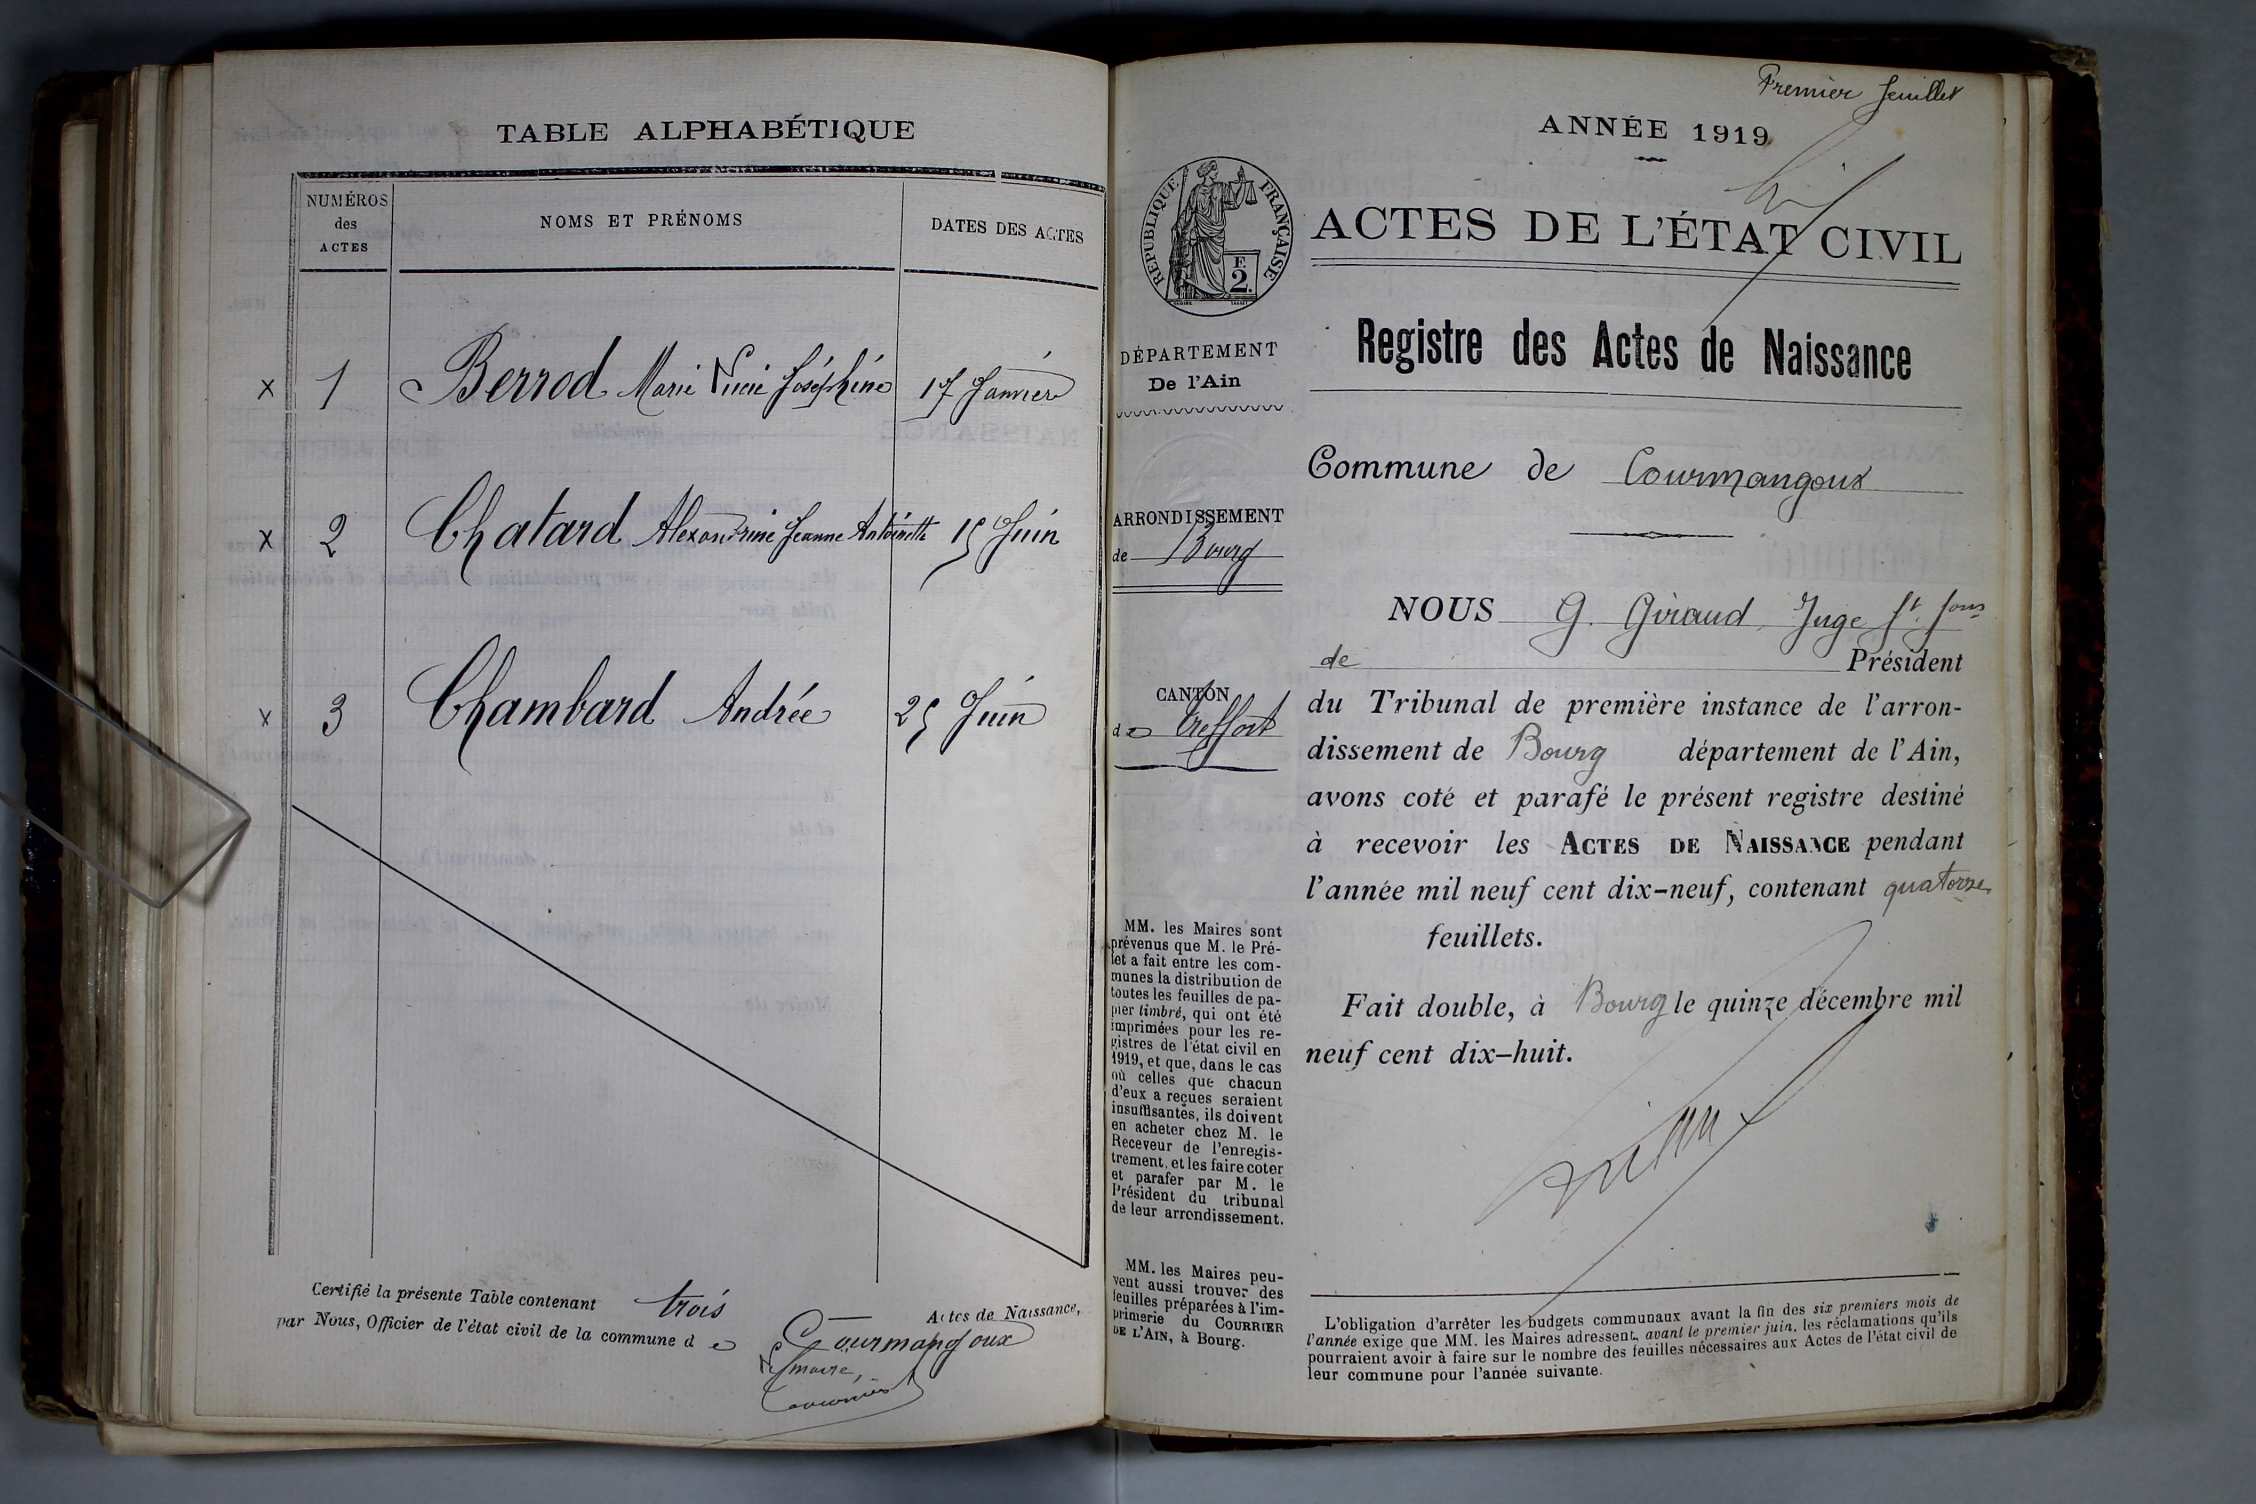 TABLE ALPHABÉTIQUE
NUMÉROS des ACTES
NOMS ET PRÉNOMS
DATES DES ACTES
x 1 Berrod Marie Lucie Joséphine 17 Janvier
x 2 Chatard Alexandrine Jeanne Antoinette 15 Juin
x 3 Chambard Andrée 25 Juin
Certifié la présente Table contenant trois Actes de Naissance,
par Nous, Officier de l'état civil de la commune de Courmangoux
Premier feuillet
ANNÉE 1919
RÉPUBLIQUE FRANÇAISE
F.
2.
ACTES DE L'ÉTAT CIVIL
Registre des Actes de Naissance
DÉPARTEMENT
De l'Ain
Commune de Courmangoux
ARRONDISSEMENT
de Bourg
CANTON
de Treffort
NOUS G. Giraud, Juge
de Président
du Tribunal de première instance de l'arron-
dissement de Bourg département de l'Ain,
avons coté et parafé le présent registre destiné
à recevoir les ACTES DE NAISSANCE pendant
l'année mil neuf cent dix-neuf, contenant quatorze
feuillets.
Fait double, à Bourg le quinze décembre mil
neuf cent dix-huit.
MM. les Maires sont
prévenus que M. le Pré-
fet a fait entre les com-
munes la distribution de
toutes les feuilles de pa-
pier timbré, qui ont été
imprimées pour les re-
gistres de l'état civil en
1919, et que, dans le cas
où celles que chacun
d'eux a reçues seraient
insuffisantes, ils doivent
en acheter chez M. le
Receveur de l'enregis-
trement, et les faire coter
et parafer par M. le
Président du tribunal
de leur arrondissement.
MM. les Maires peu-
vent aussi trouver des
feuilles préparées à l'im-
primerie du COURRIER
DE L'AIN, à Bourg.
L'obligation d'arrêter les budgets communaux avant la fin des six premiers mois de
l'année exige que MM. les Maires adressent, avant le premier juin, les réclamations qu'ils
pourraient avoir à faire sur le nombre des feuilles nécessaires aux Actes de l'état civil de
leur commune pour l'année suivante.